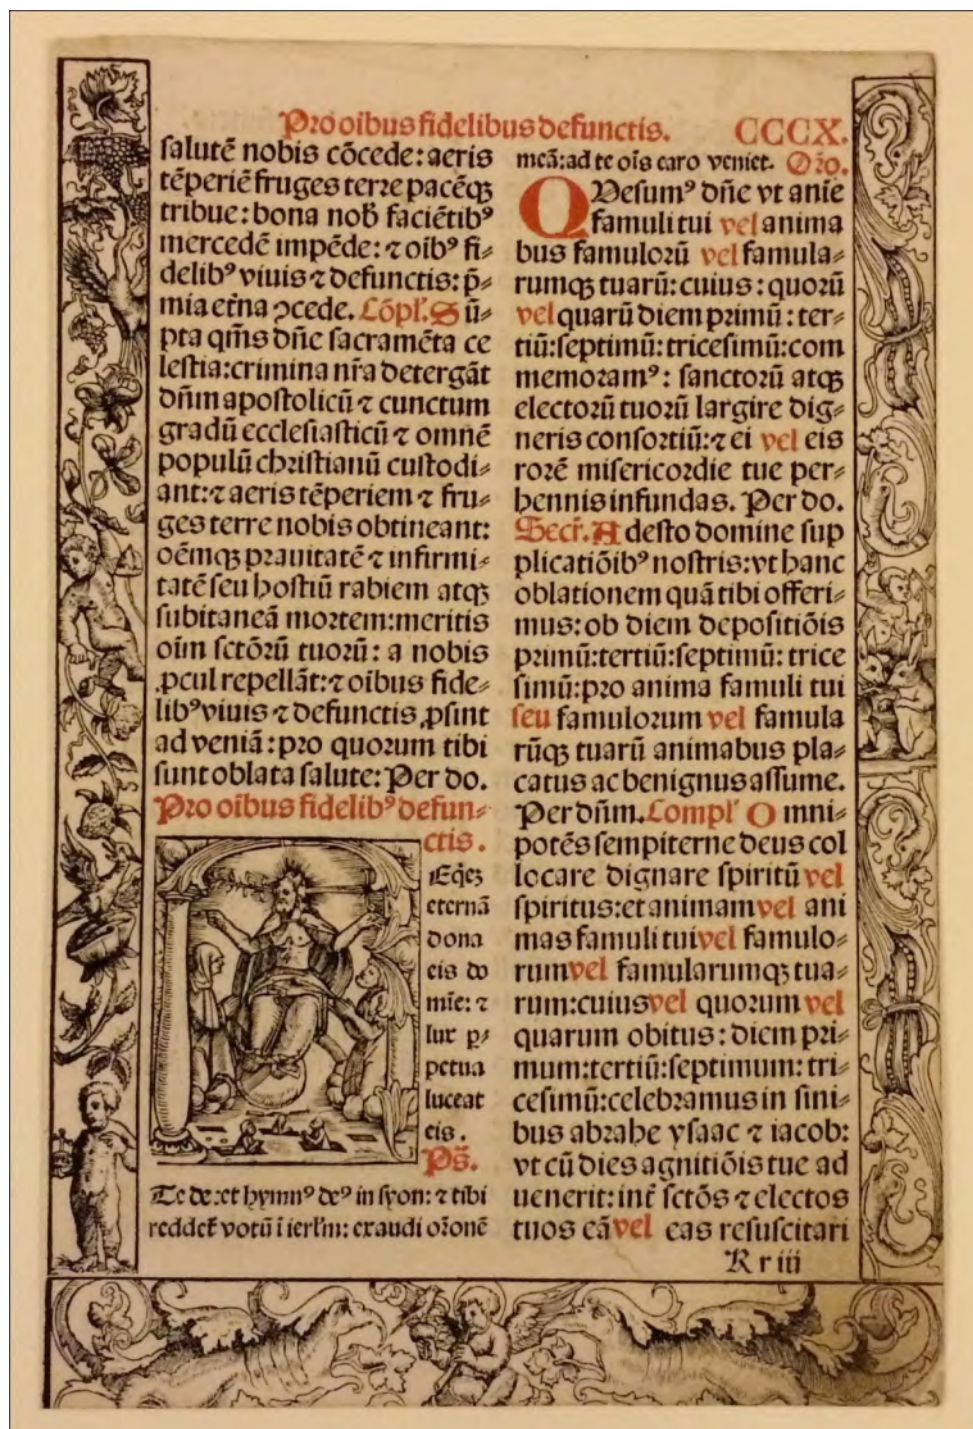 Pro oibus fidelibus defunctis. CCCX.
salutē nobis cōcede: aeris
tēperiē fruges terre pacēqꝫ
tribue: bona nob̄ faciētibꝰ
mercedē impēde: ⁊ oibꝰ fi⸗
delibꝰ viuis ⁊ defunctis: p̄⸗
mia et̄na ꝯcede. Cōpl'. Sū⸗
pta qm̄s dn̄e sacramēta ce
lestia: crimina nr̄a detergāt
dn̄m apostolicū ⁊ cunctum
gradū ecclesiasticū ⁊ omnē
populū christianū custodi⸗
ant: ⁊ aeris tēperiem ⁊ fru⸗
ges terre nobis obtineant:
oēmqꝫ prauitatē ⁊ infirmi⸗
tatē seu hostiū rabiem atqꝫ
subitaneā mortem: meritis
oīm sctōrū tuorū: a nobis
ꝓcul repellāt: ⁊ oibus fide⸗
libꝰ viuis ⁊ defunctis ꝓsint
ad veniā: pro quorum tibi
sunt oblata salute: Per do.
Pro oibus fidelibꝰ defun⸗
ctis.
Eq̄eꝫ
eternā
dona
eis do
mīe: ⁊
lux p̱⸗
petua
luceat
eis.
Ps̄.
Te de: et hymnꝰ deꝰ in syon: ⁊ tibi
reddet̄ votū ī ierl'm: exaudi orōnē
meā: ad te oīs caro veniet. Oro.
QUesumꝰ dn̄e vt anīe
famuli tui vel anima
bus famulorū vel famula⸗
rumqꝫ tuarū: cuius: quorū
vel quarū diem primū: ter⸗
tiū: septimū: tricesimū: com
memoramꝰ: sanctorū atqꝫ
electorū tuorū largire dig⸗
neris consortiū: ⁊ ei vel eis
rorē misericordie tue per⸗
hennis infundas. Per do.
Secr̄. Adesto domine sup
plicatiōibꝰ nostris: vt hanc
oblationem quā tibi offeri⸗
mus: ob diem depositiōis
primū: tertiū: septimū: trice
simū: pro anima famuli tui
seu famulorum vel famula
rūqꝫ tuarū animabus pla⸗
catus ac benignus assume.
Per dn̄m. Compl' Omni⸗
potēs sempiterne deus col
locare dignare spiritū vel
spiritus: et animam vel ani
mas famuli tui vel famulo⸗
rum vel famularumqꝫ tua⸗
rum: cuius vel quorum vel
quarum obitus: diem pri⸗
mum: tertiū: septimum: tri⸗
cesimū: celebramus in sini⸗
bus abrahe ysaac ⁊ iacob:
vt cū dies agnitiōis tue ad
uenerit: int̄ sctōs ⁊ electos
tuos eā vel eas resuscitari
R r iii